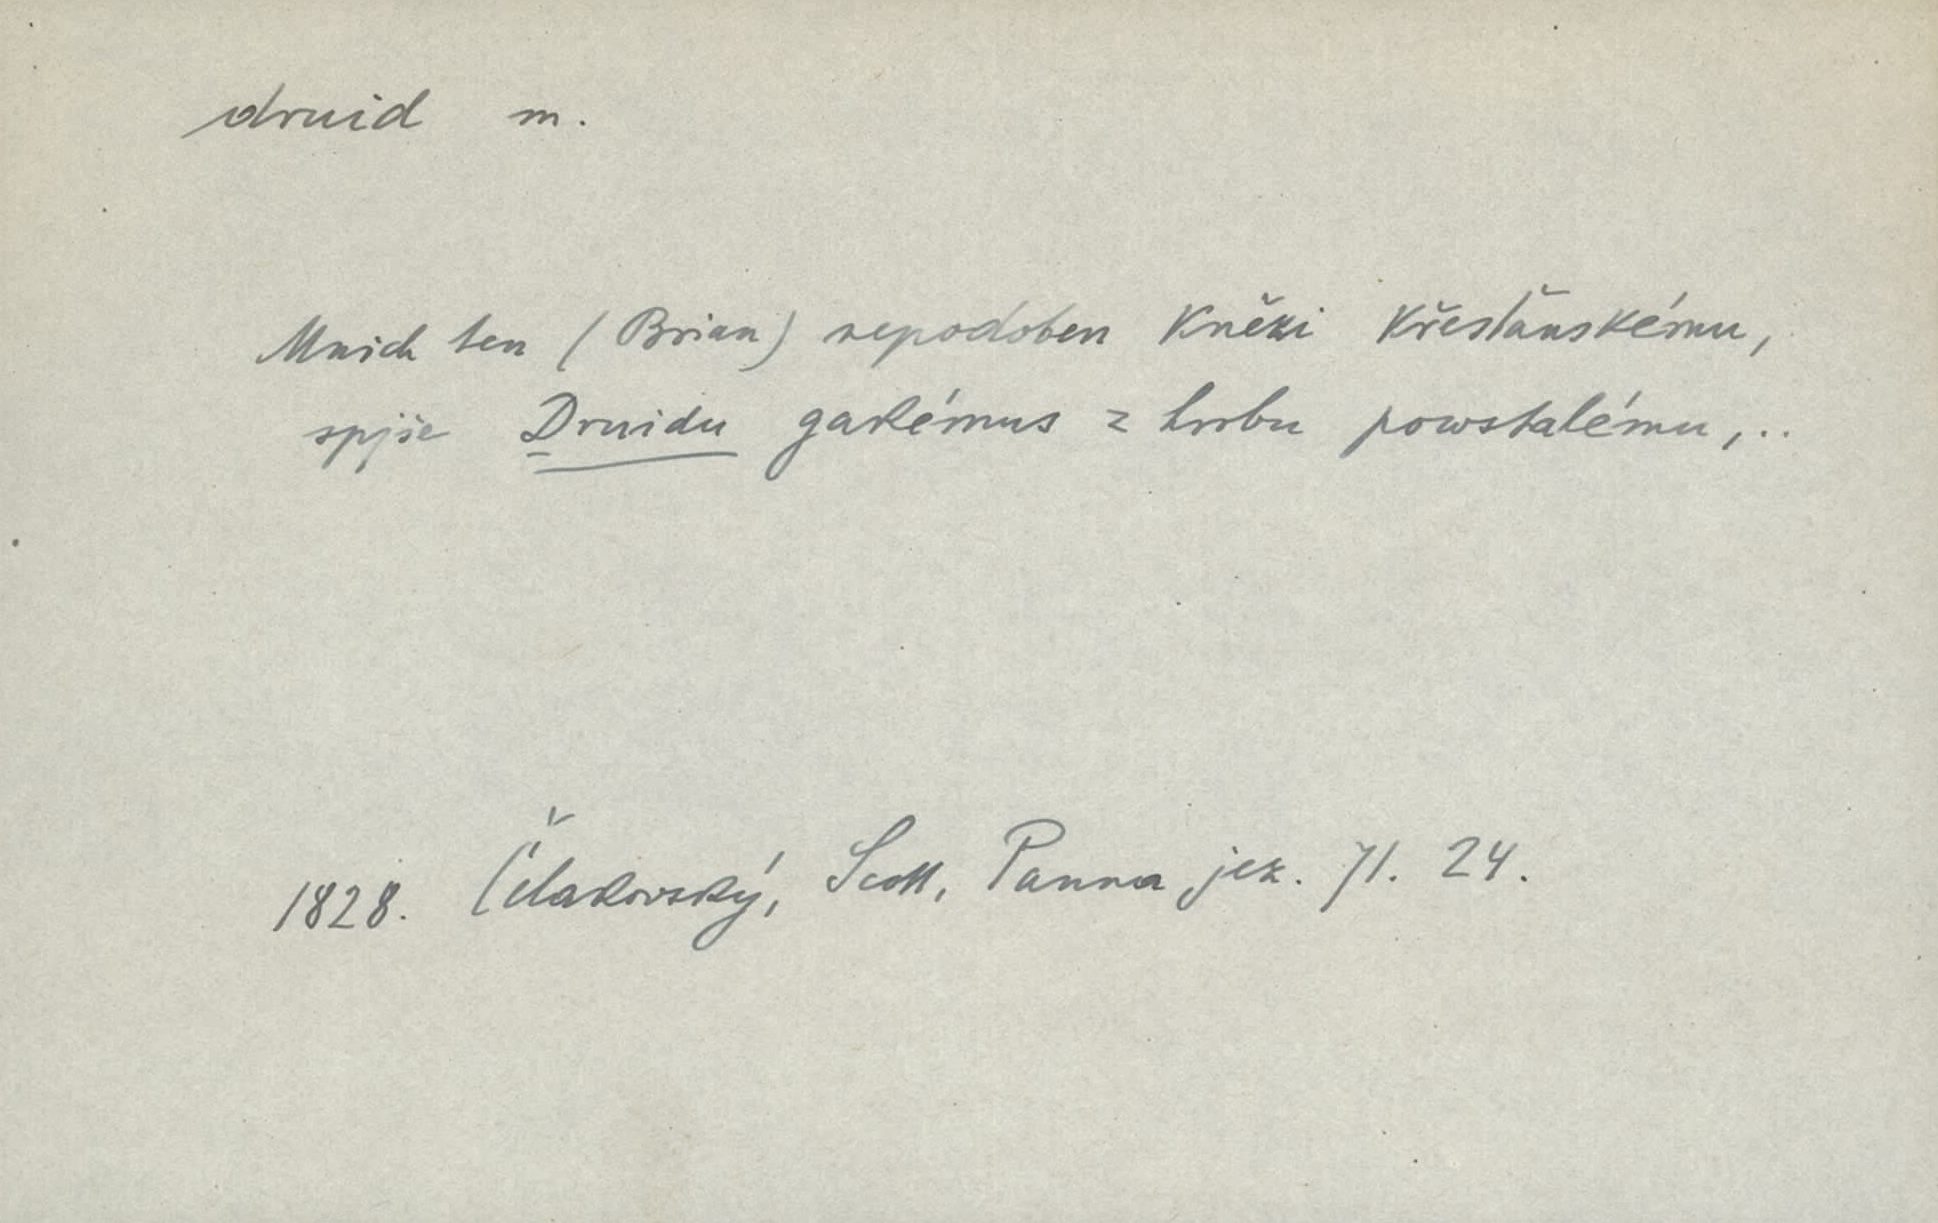 druid m.
Mnich ten (Brian) nepodoben Kněži Křesťanskému,
spjše Druidu gakémus z hrobu powstalému,..
1828. Čelakovský, Scott, Panna jez. 71. 24.